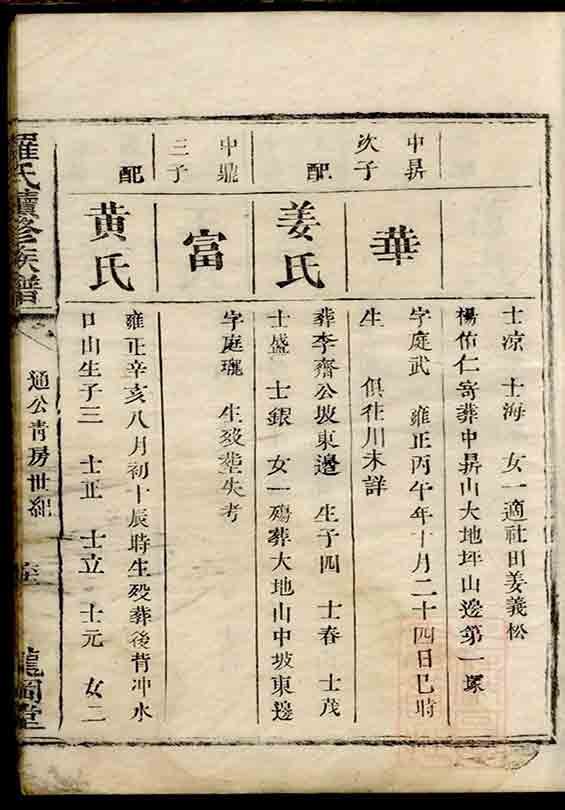 士凉　士海　女一適社田姜義松
楊佑仁寄葬中昇山大地坪山邊第一塚
中昇
次子
華
字庭武　雍正丙午年十月二十四日巳時
生　俱徃川未詳
配
姜氏
葬李齋公坡東邊　生子四　士春　士茂
士盛　士銀　女一殤葬大地山中坡東邊
中鼎
三子
富
字庭瓏　生殁塟失考
配
黄氏
雍正辛亥八月初十辰時生殁葬後背冲水
口山生子三　士正　士立　士元　女二
羅氏續修族譜
通公青房世紀
龍岡堂